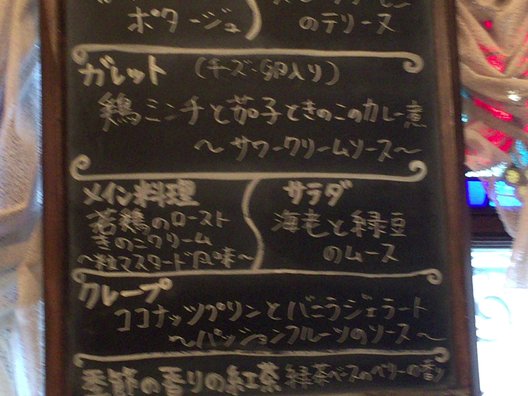 ポタージュ
のテリーヌ
ガレット (チーズ・卵入り)
鶏ミンチと茄子ときのこのカレー煮
〜サワークリームソース〜
メイン料理
若鶏のロースト
きのこクリーム
〜粒マスタード風味〜
サラダ
海老と緑豆
のムース
クレープ
ココナッツプリンとバニラジェラート
〜パッションフルーツのソース〜
季節の香りの紅茶 緑茶ベースのベリーの香り